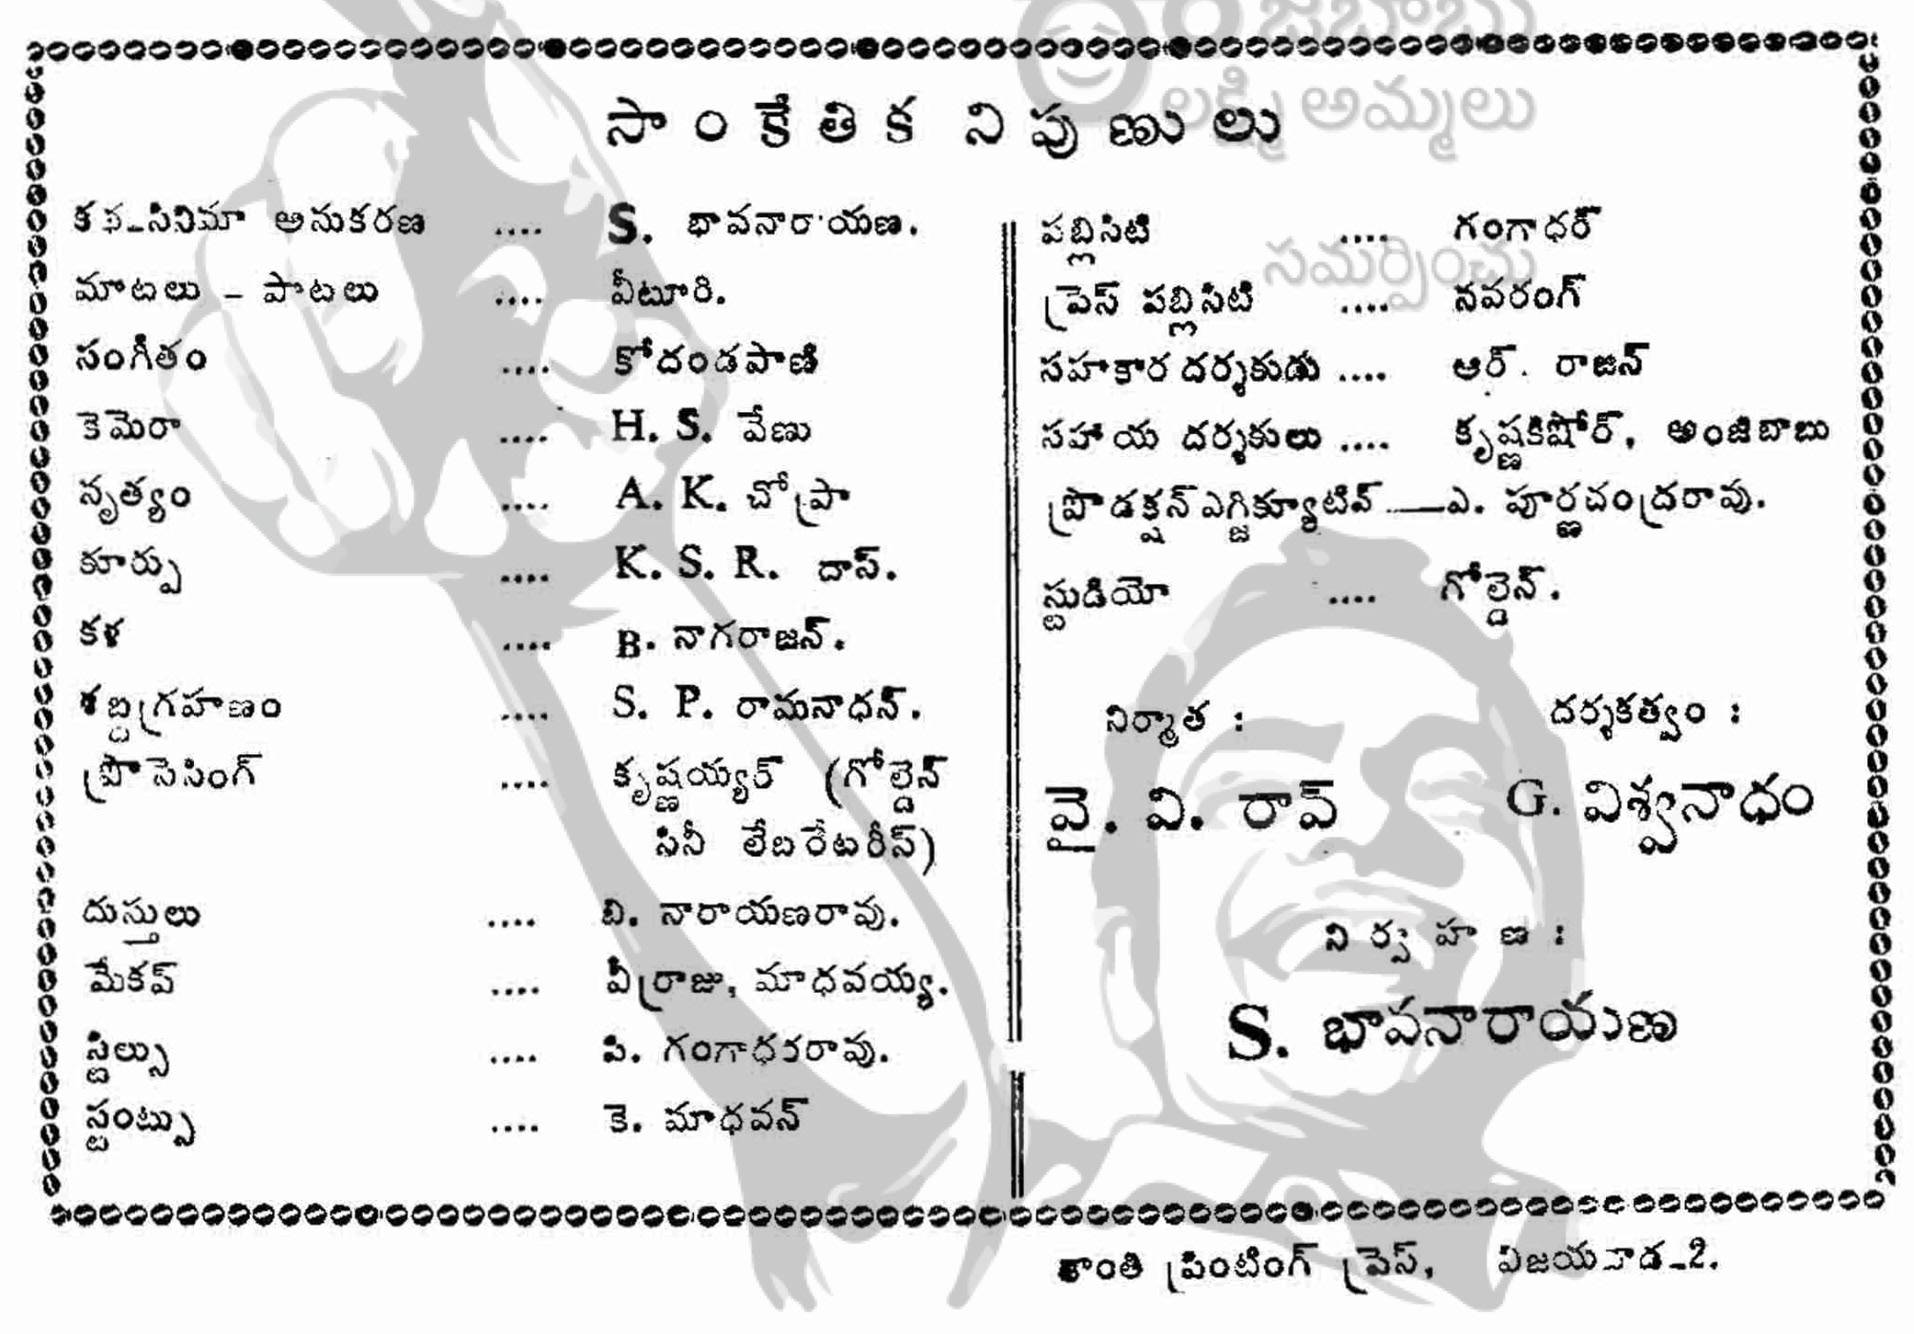 సాంకేతిక నిపుణులు
కథ-సినిమా అనుకరణ .... S. భావనారాయణ.
మాటలు - పాటలు .... వీటూరి.
సంగీతం .... కోదండపాణి
కెమెరా .... H. S. వేణు
నృత్యం .... A. K. చోప్రా
కూర్పు .... K. S. R. దాస్.
కళ .... B. నాగరాజన్.
శబ్దగ్రహణం .... S. P. రామనాధన్.
ప్రాసెసింగ్ .... కృష్ణయ్యర్ (గోల్డెన్
సినీ లేబరేటరీస్)
దుస్తులు .... బి. నారాయణరావు.
మేకప్ .... వీర్రాజు, మాధవయ్య.
స్టిల్సు .... పి. గంగాధరరావు.
స్టంట్సు .... కె. మాధవన్
పబ్లిసిటి .... గంగాధర్
ప్రెస్ పబ్లిసిటి .... నవరంగ్
సహకార దర్శకుడు .... ఆర్. రాజన్
సహాయ దర్శకులు .... కృష్ణకిషోర్, అంజిబాబు
ప్రొడక్షన్ ఎగ్జిక్యూటివ్ —ఎ. పూర్ణచంద్రరావు.
స్టుడియో .... గోల్డెన్.
నిర్మాత : దర్శకత్వం :
వై. వి. రావ్ G. విశ్వనాధం
నిర్వహణ :
S. భావనారాయణ
కాంతి ప్రింటింగ్ ప్రెస్, విజయవాడ-2.
లక్ష్మి అమ్మలు
సమర్పించు